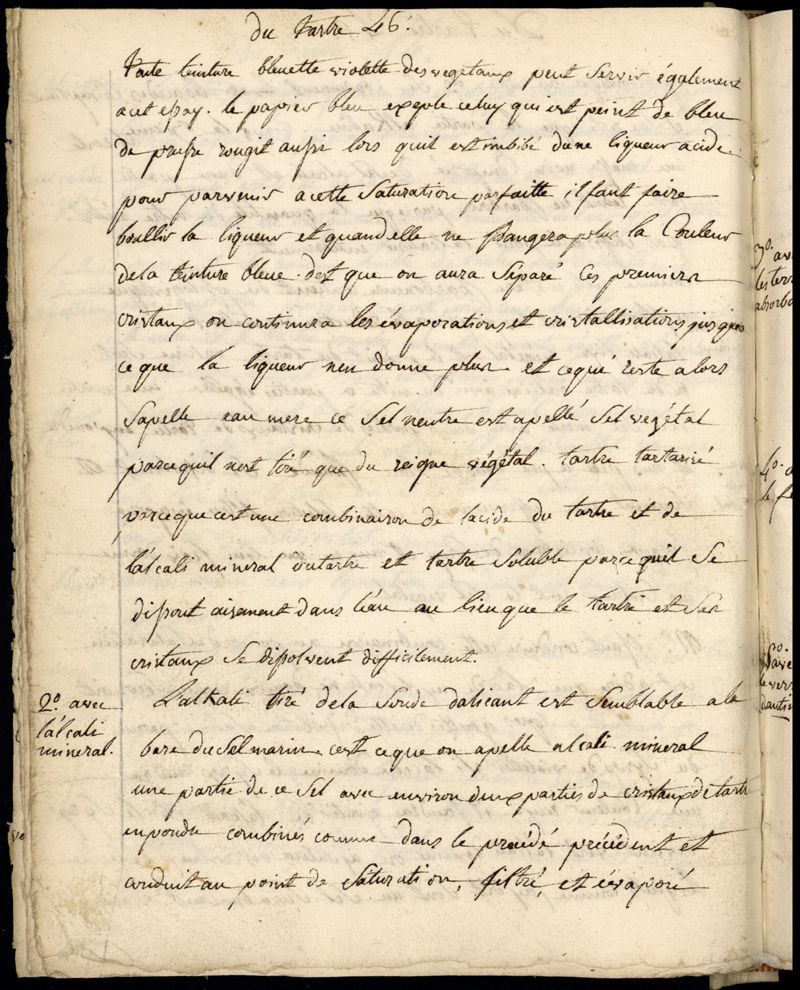 du tartre 46.
toute teinture bleuette violette des vegetaux peut servir également
a cet essay. le papier bleu excepté celuy qui est peint de bleu
de prusse rougit aussi lors quil est imbibé dune liqueur acide.
pour parvenir a cette saturation parfaitte il faut faire
boullir la liqueur et quand elle ne changera plus la Couleur
de la teinture bleue. des que on aura séparé ces premiers
cristaux on continuera les évaporations et cristallisations jusqua
ce que la liqueur nen donne plus et ce qui reste alors
sapelle eau mere ce sel neutre est apellé sel vegétal
parcequil nest tiré que du reigne végétal. tartre tartarisé
parceque cest une combinaison de lacide du tartre et de
lálcali mineral du tartre et tartre soluble parce quil se
dissout aisement dans léau au lieu que le tartre et ses
cristaux se dissolvent difficilement.
2º. avec
lálcali
mineral.
Lalkali tiré de la Soude dalicant est semblable a la
base du sel marin cest ce que on apelle alcali mineral
une partie de ce sel avec environ deux parties de cristaux de tartre
en poudre combinés comme dans le procédé précédent et
conduit au point de saturation, filtré, et évaporé
3º. av
les terr
absorba
4º. a
le fe
5º.
avec
le vers